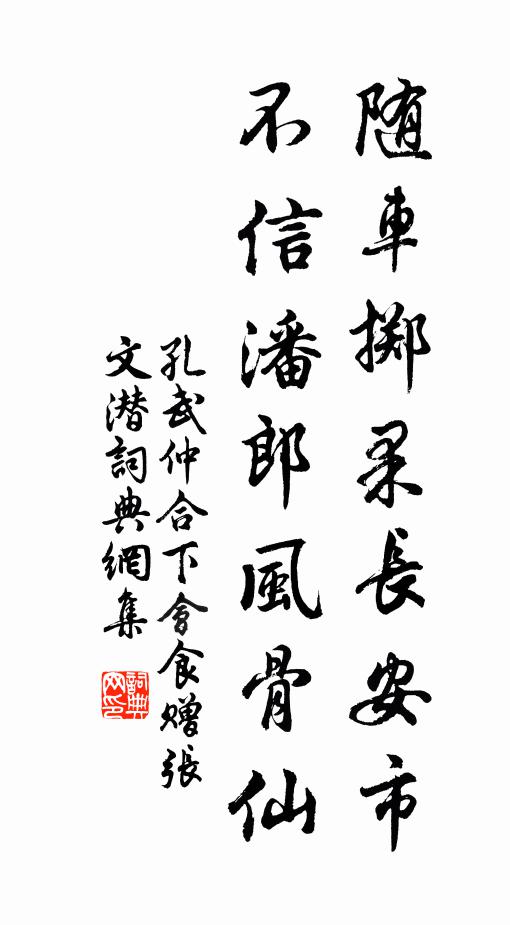 随車擲果長安市
不信潘郎風骨仙
孔武仲合下會食贈張
文潛詞典網集
詞典
网印